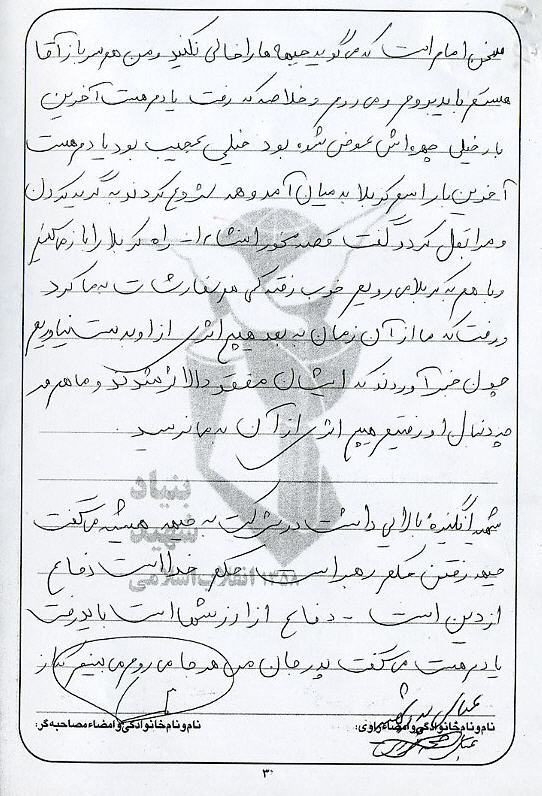 سخن امام است که می گوید جبهه ها را خالی نکنید و من هم سرباز آقا
هستم باید بروم و می روم و خلاصه که رفت یادم هست آخرین
بار خیلی چهره اش عوض شده بود خیلی عجیب بود یادم هست
آخرین بار اسم کربلا به میان آمد و همه شروع کردند به گریه کردن
و مرا بغل کرد و گفت غصه نخور انشاءا... راه کربلا را باز می کنیم
و با هم به کربلا می رویم خوب رفتند کمی هم سفارشات به ما کرد
و رفت که ما از آن زمان به بعد هیچ اثری از او بدست نیاوردیم
چون خبر آوردند که ایشان مفقود الاثر شدند و ما هم هر
چه دنبال او رفتیم هیچ اثری از آن به ما نرسید.
شهید انگیزۀ بالایی داشت در شرکت به جبهه همیشه می گفت
جبهه رفتن حکم رهبر است حکم خدا است دفاع
از دین است - دفاع از ارزشها است باید رفت
یادم هست می گفت پدر جان من هر جا می روم می بینم
بنیاد
شهید
انقلاب اسلامی
۱۳۵۸
نام و نام خانوادگی و امضاء راوی:
نام و نام خانوادگی و امضاء مصاحبه گر:
۳۰